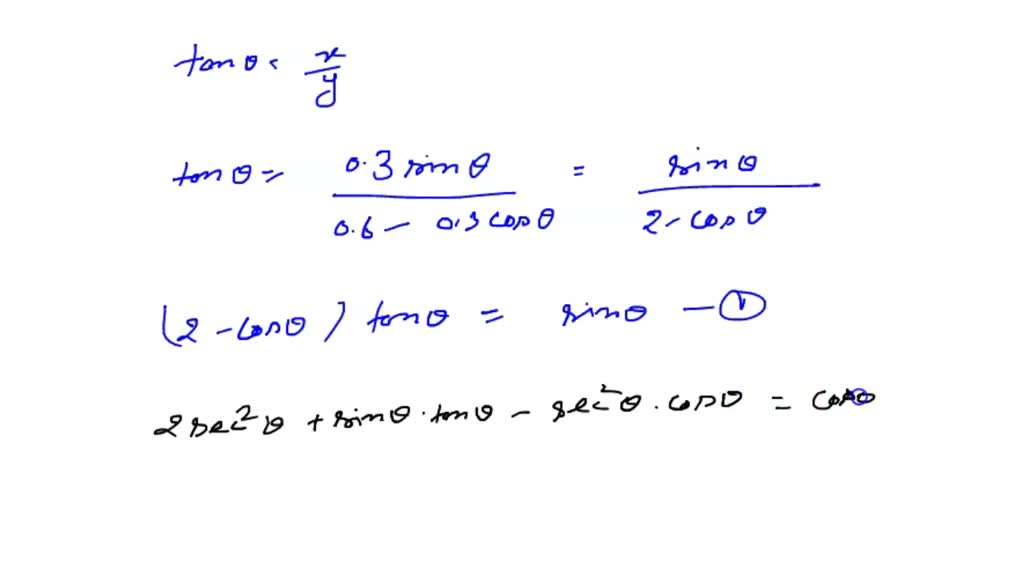 tanθ = x/y
tanθ = 0.3 sinθ / 0.6 - 0.3 cosθ = sinθ / 2 - cosθ
(2 - cosθ) tanθ = sinθ — ①
2 sec²θ + sinθ · tanθ - sec²θ · cosθ = cosθ